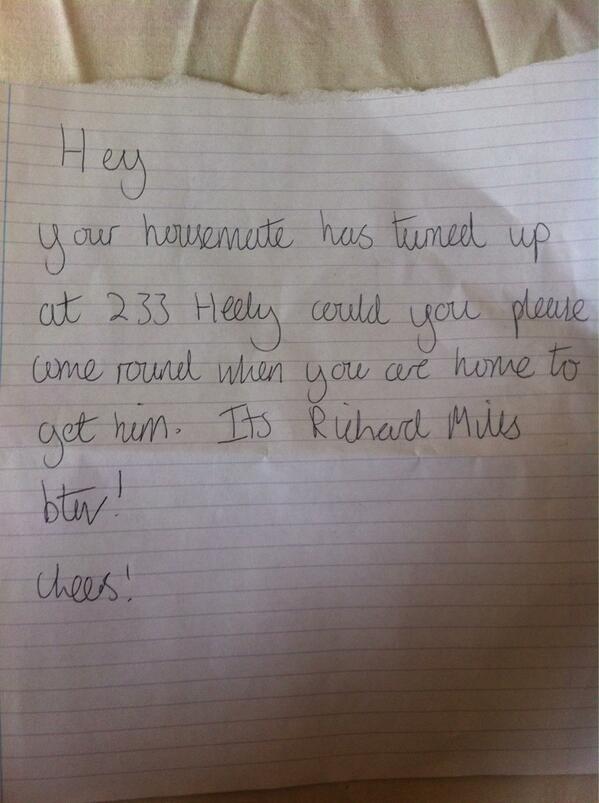 Hey
your housemate has turned up
at 233 Heely could you please
come round when you are home to
get him. Its Richard Miles
btw!
cheers!